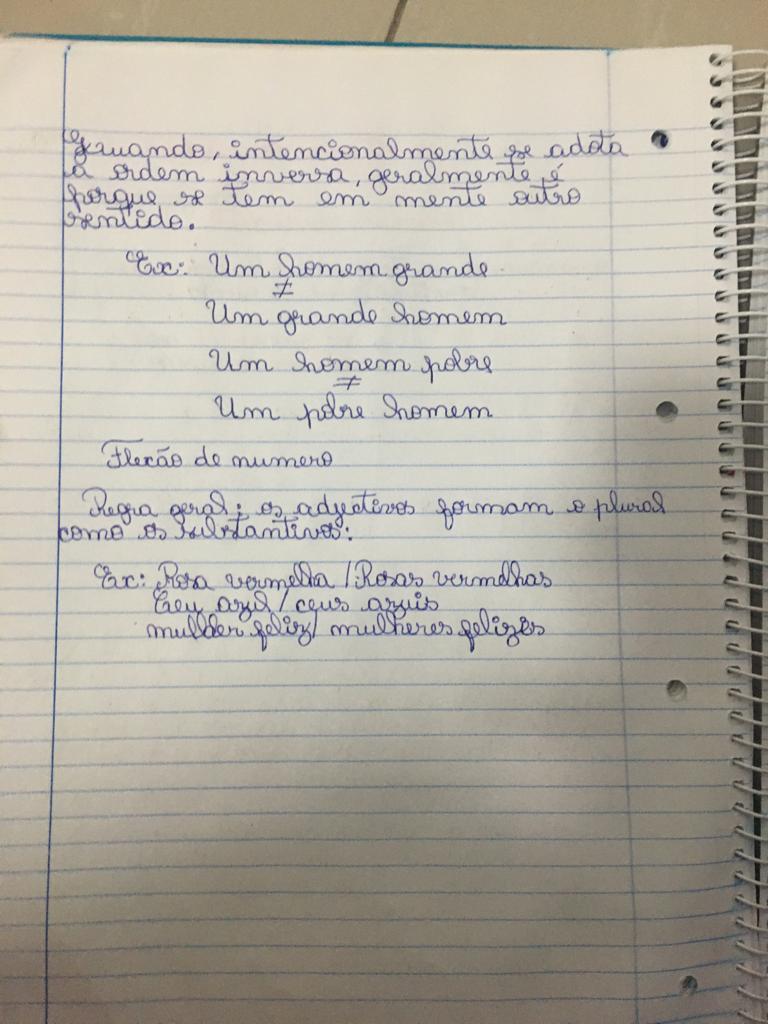 Quando, intencionalmente se adota
a ordem inversa, geralmente é
porque se tem em mente outro
sentido.
Ex: Um homem grande
≠
Um grande homem
Um homem pobre
≠
Um pobre homem
Flexão de numero
Regra geral: os adjetivos formam o plural
como os substantivos:
Ex: Rosa vermelha / Rosas vermelhas
Ceu azul / ceus azuis
mulher feliz / mulheres felizes